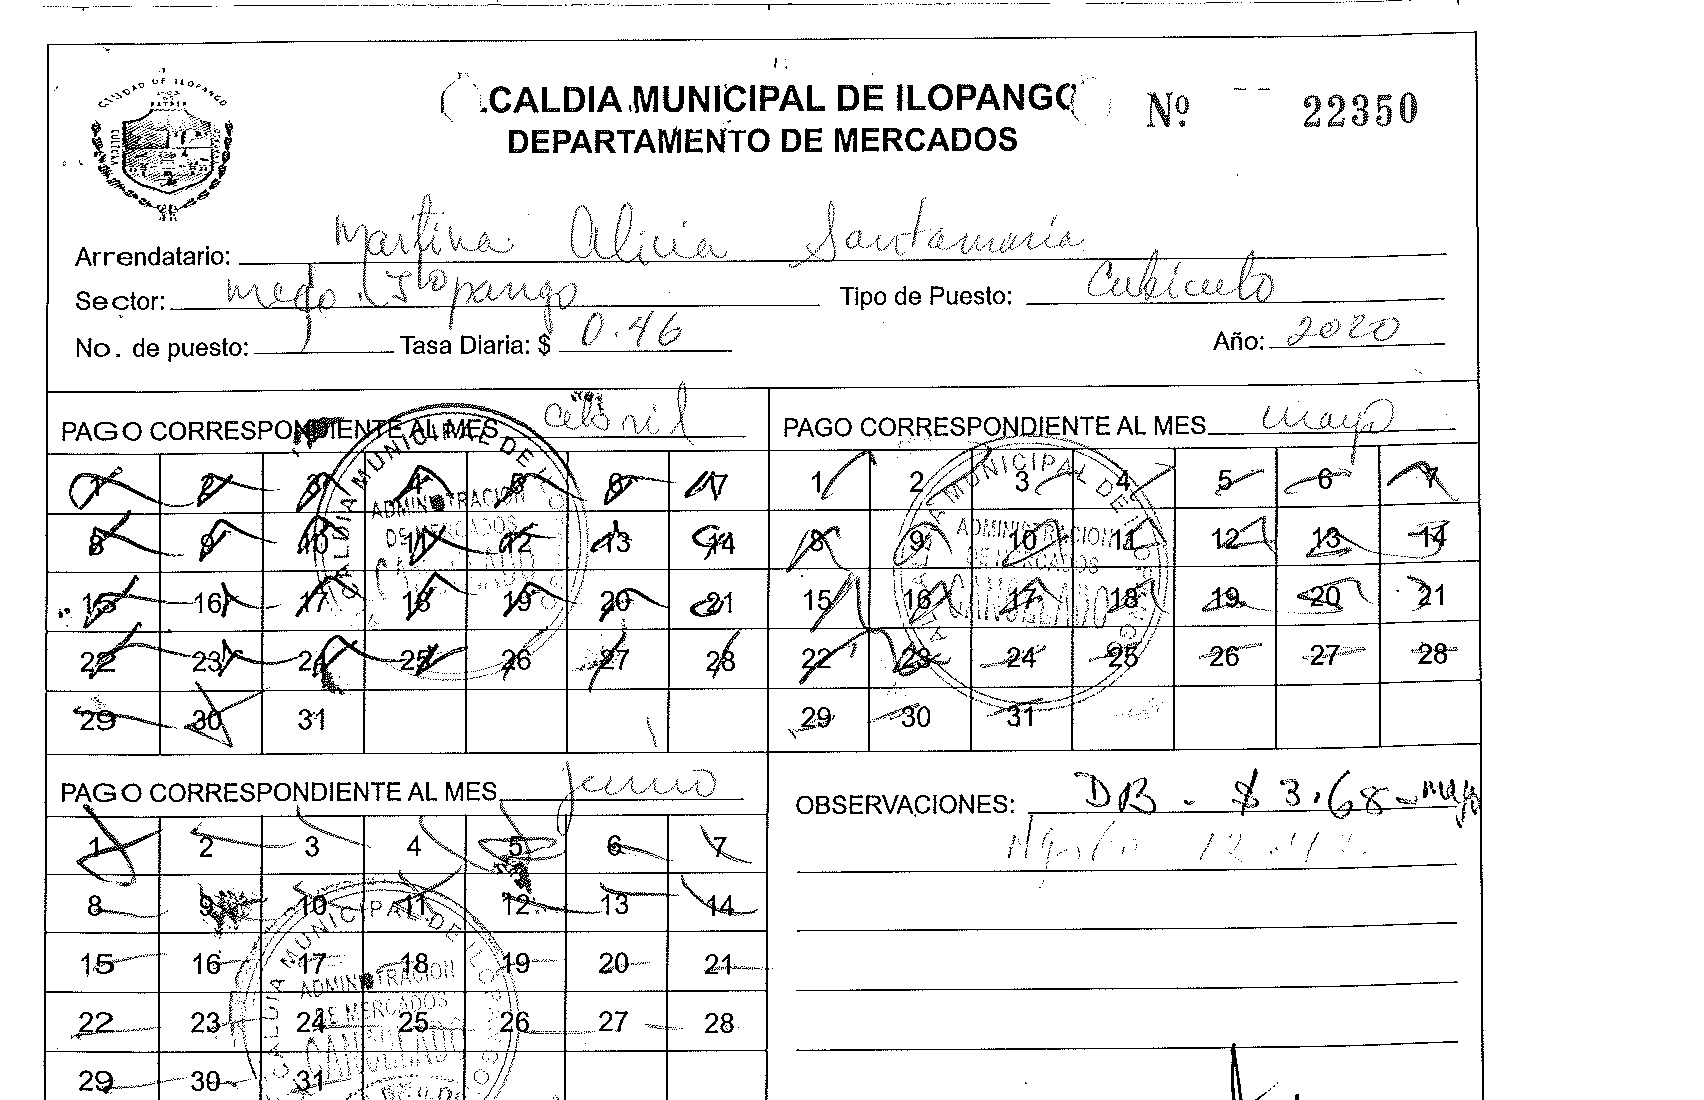 CIUDAD DE ILOPANGO
ALCALDIA MUNICIPAL DE ILOPANGO
Nº 22350
DEPARTAMENTO DE MERCADOS
Arrendatario: Martina Alicia Santamaría
Sector: Ilopango Tipo de Puesto: Cubículo
No. de puesto: Tasa Diaria: $ 0.46 Año: 2020
PAGO CORRESPONDIENTE AL MES abril
1 2 3 4 5 6 7
8 9 10 11 12 13 14
15 16 17 18 19 20 21
22 23 24 25 26 27 28
29 30 31
ALCALDIA MUNICIPAL DE ILOPANGO
ADMINISTRACION
DE MERCADOS
CANCELADO
PAGO CORRESPONDIENTE AL MES mayo
1 2 3 4 5 6 7
8 9 10 11 12 13 14
15 16 17 18 19 20 21
22 23 24 25 26 27 28
29 30 31
ALCALDIA MUNICIPAL DE ILOPANGO
ADMINISTRACION
DE MERCADOS
CANCELADO
PAGO CORRESPONDIENTE AL MES junio
1 2 3 4 5 6 7
8 9 10 11 12 13 14
15 16 17 18 19 20 21
22 23 24 25 26 27 28
29 30 31
ALCALDIA MUNICIPAL DE ILOPANGO
ADMINISTRACION
DE MERCADOS
CANCELADO
OBSERVACIONES: DB - $ 3.68 - mayo